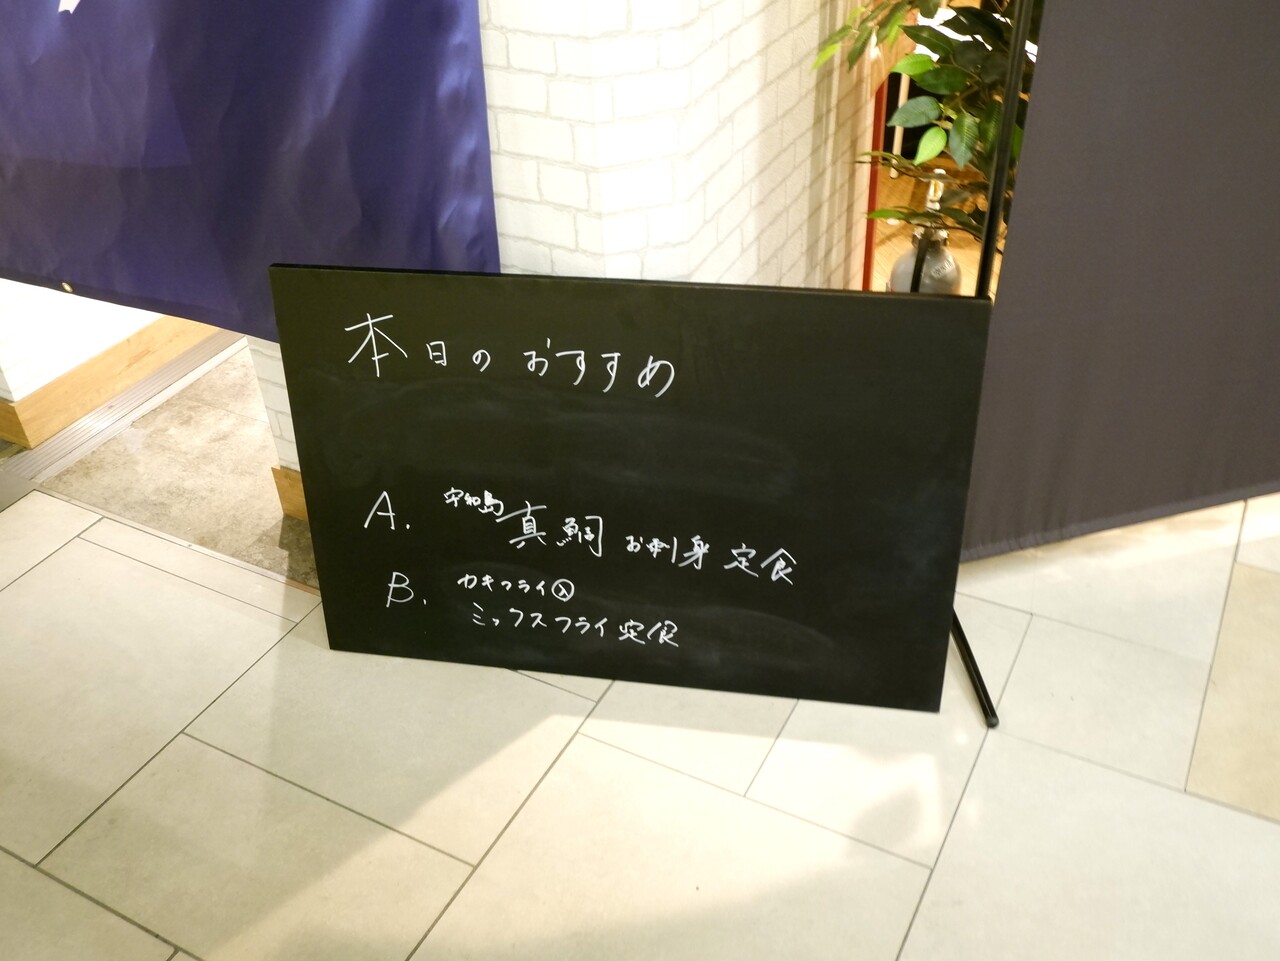 本日のおすすめ
A. 宇和島 真鯛 お刺身 定食
B. カキフライ入
ミックスフライ定食